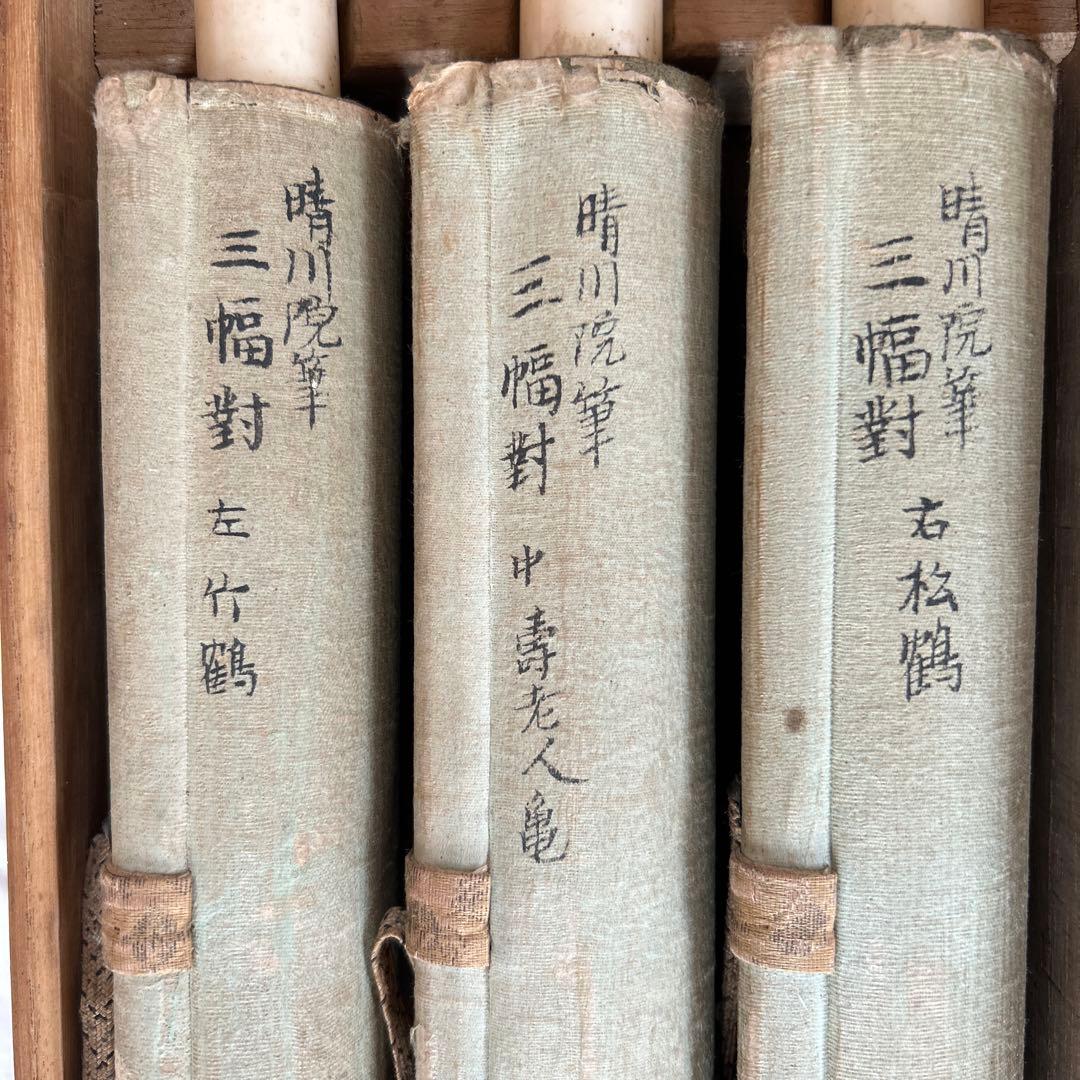 晴川院筆
三幅對 左 竹鶴
晴川院筆
三幅對 中 壽老人亀
晴川院筆
三幅對 右 松鶴